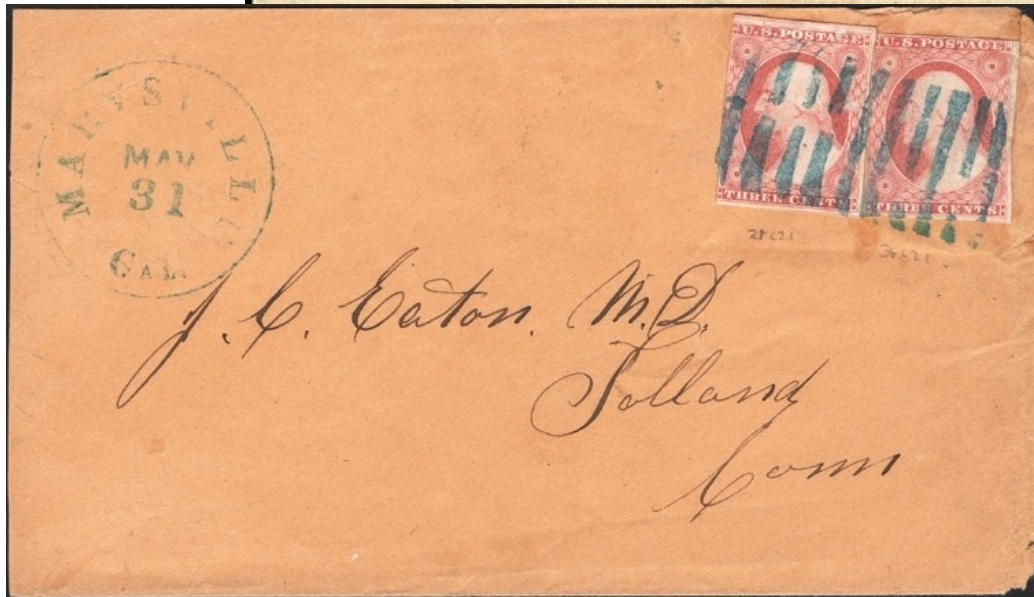 MARYSVILLE
MAY
31
CAL.
U.S. POSTAGE
THREE CENTS
U.S. POSTAGE
THREE CENTS
28L21
J. C. Eaton. M.D.
Tolland
Conn